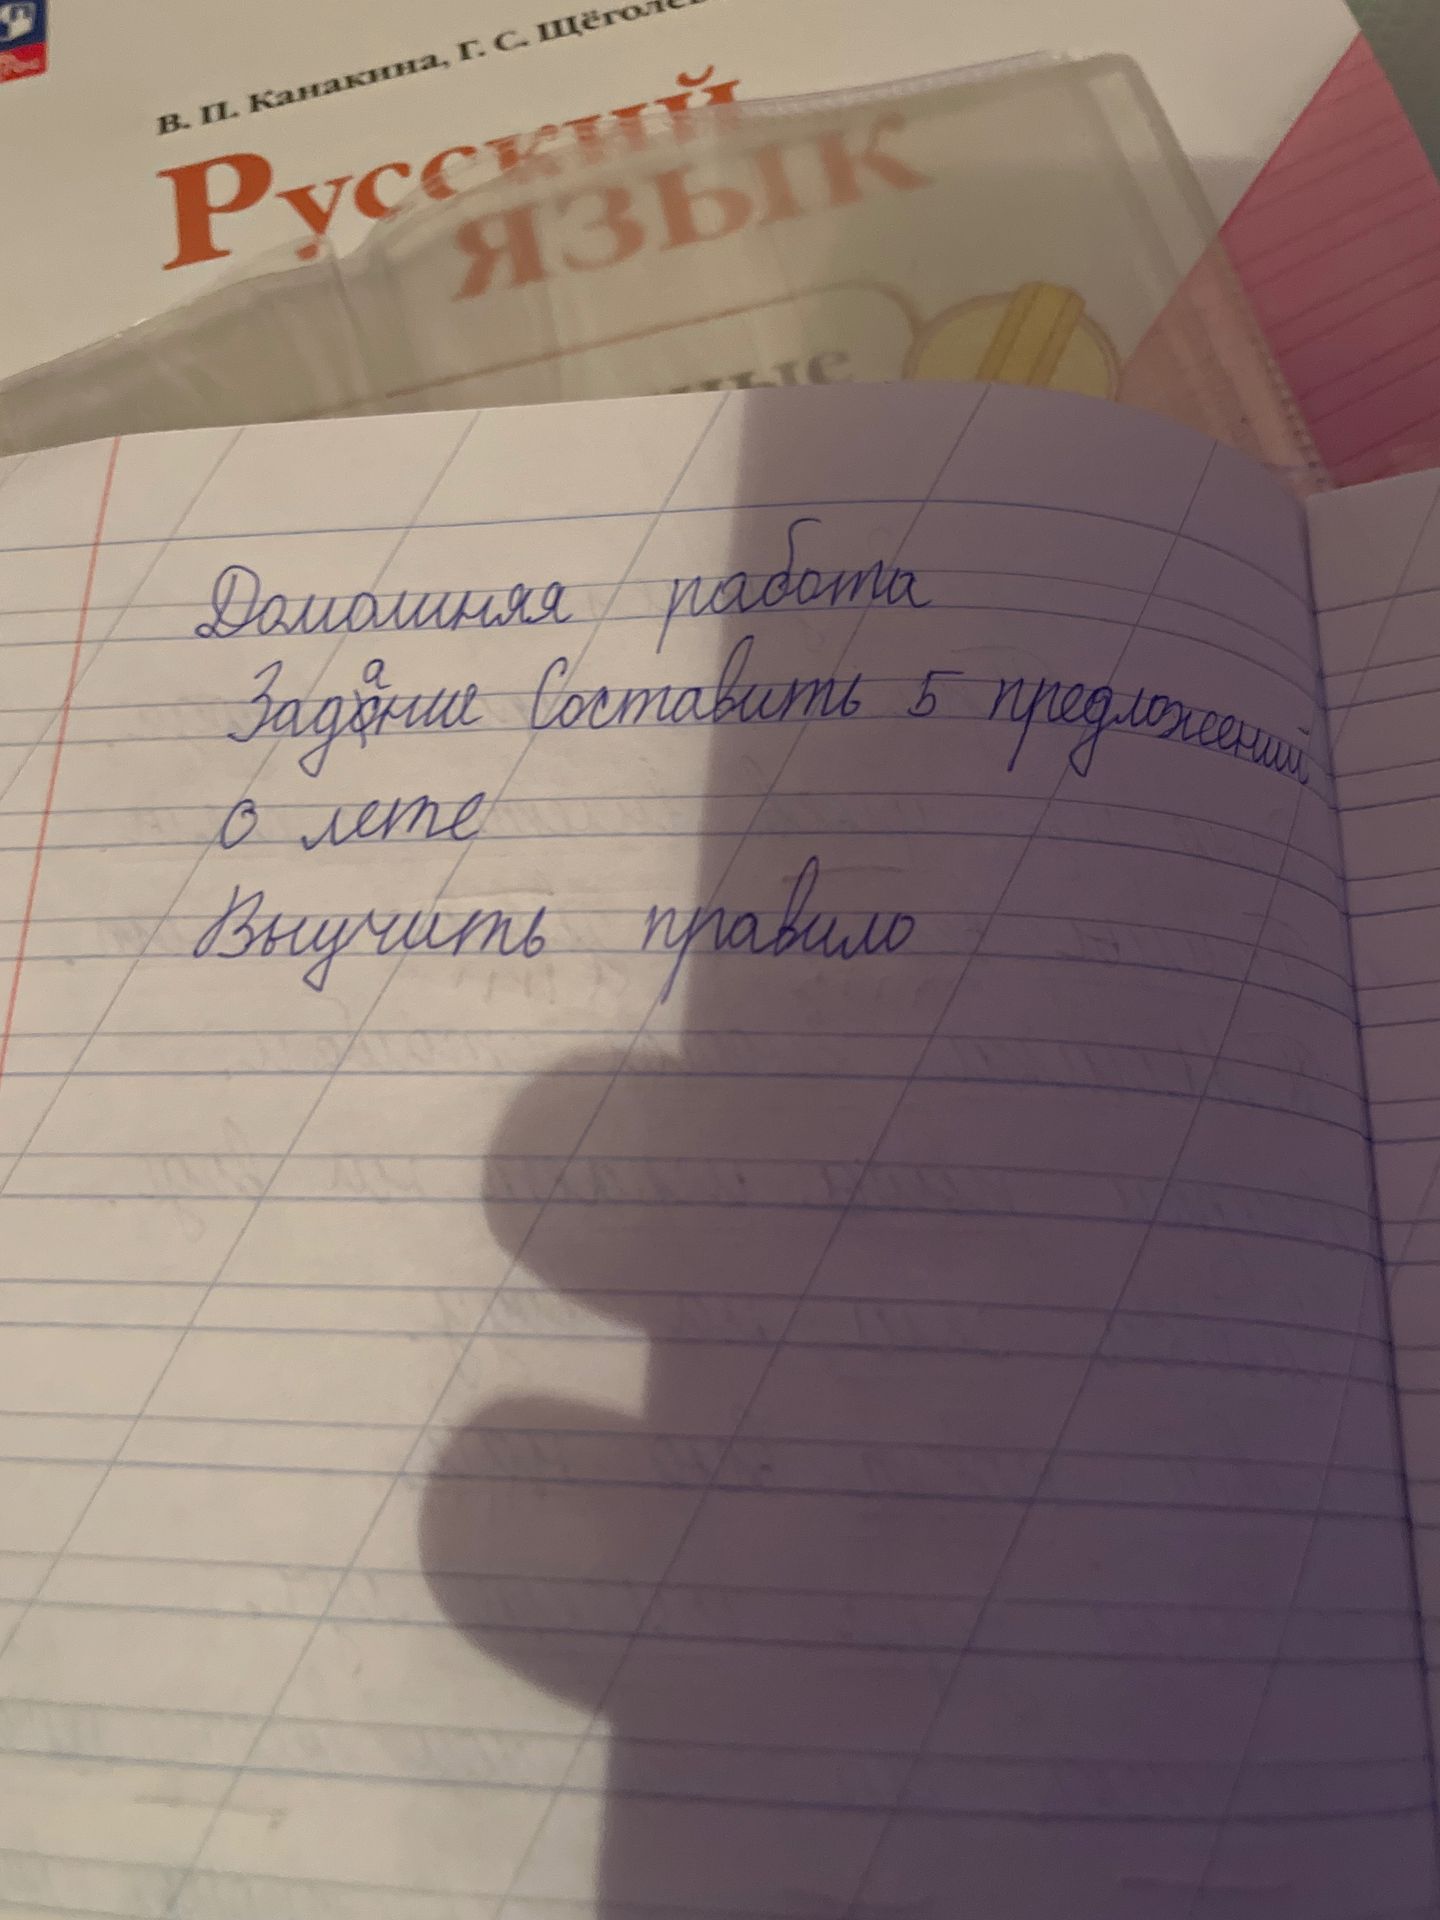 В. П. Канакина, Г. С. Щёголев
Русский
ЯЗЫК
ные
Домашняя работа
Задание Составить 5 предложений
о лете
Выучить правило